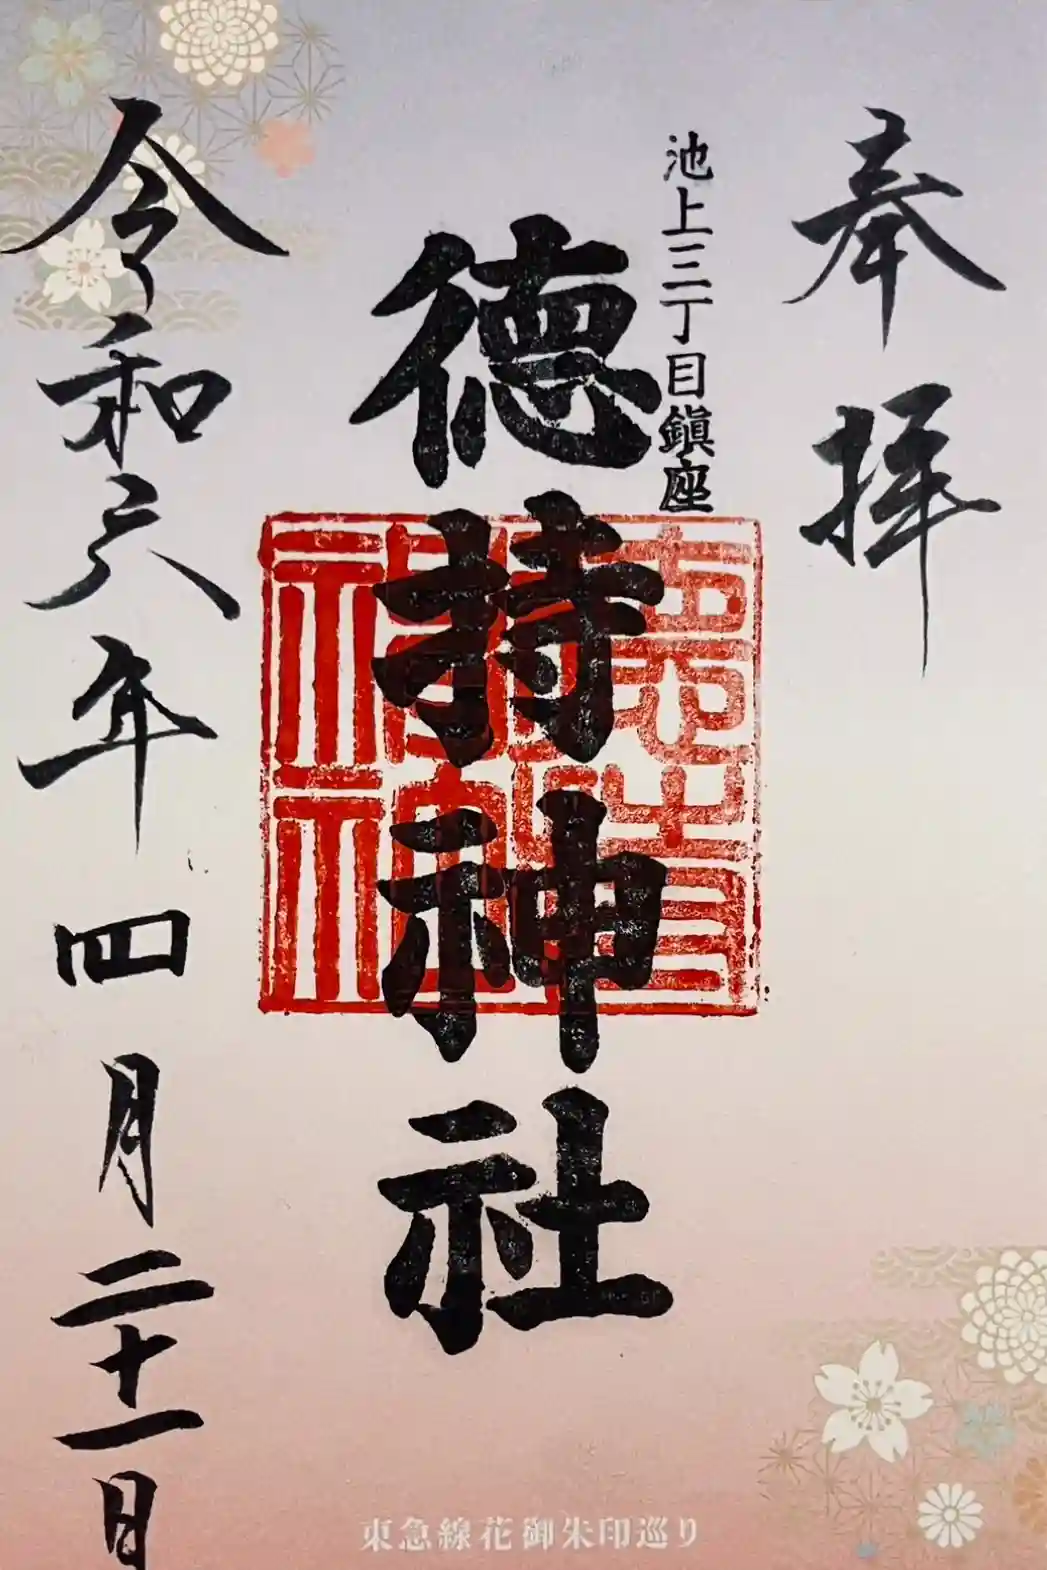 奉拝
池上三丁目鎮座
徳持神社
令和六年四月二十一日
東急線花御朱印巡り